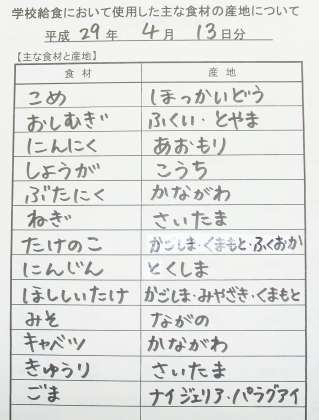 学校給食において使用した主な食材の産地について
平成 29 年 4 月 13 日分
【主な食材と産地】
食材 産地
こめ ほっかいどう
おしむぎ ふくい・とやま
にんにく あおもり
しょうが こうち
ぶたにく かながわ
ねぎ さいたま
たけのこ かごしま・くまもと・ふくおか
にんじん とくしま
ほししいたけ かごしま・みやざき・くまもと
みそ ながの
キャベツ かながわ
きゅうり さいたま
ごま ナイジェリア・パラグアイ